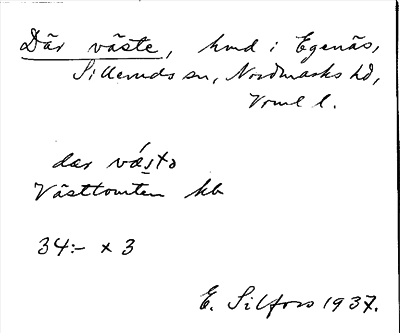 Där väste, hmd i Egenäs,
Silleruds sn, Nordmarks hd,
Vrml l.
dær væ̀sto
Västtomten kb
34:- x 3
E. Silfors 1937.